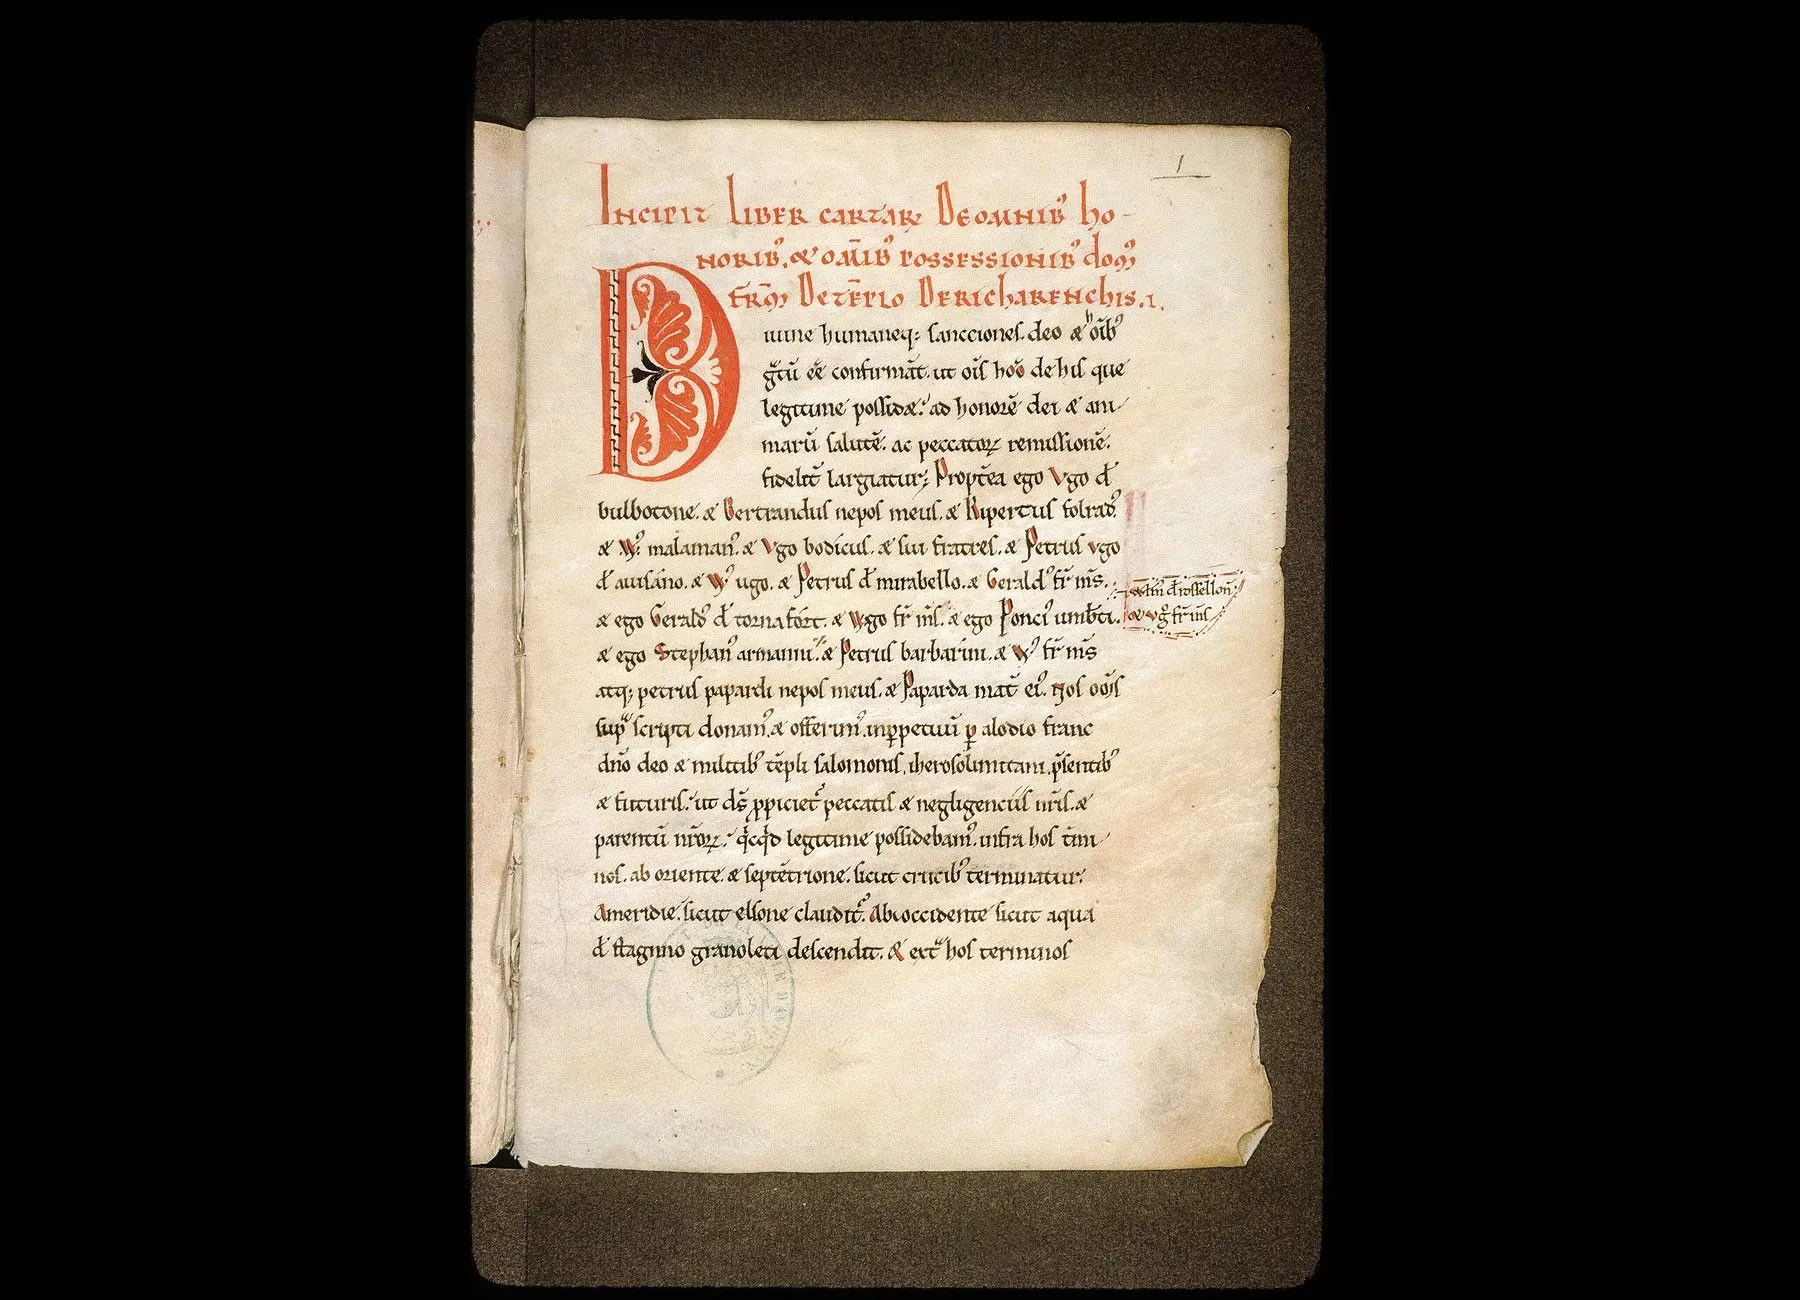 1
Incipit liber cartarꝫ De omnibꝰ ho-
noribꝰ. & om̄ibꝰ possessionibꝰ domꝰ
fr̄m De tēplo De richarenchis. i.
Diuine humaneq; sancciones. deo & oīb;
confirmāt. ut oīs hoō de his que
legitime possidæ. ad honorē dei & ani
marū salutē. ac peccatoꝝ remissionē.
fidelit̄ largiatur; Propt̄ea ego Vgo đ
bulbotone. & Bertrandus nepos meus. & Ripertus folrađ.
& Wꝰ malamanꝰ. & Vgo bodicus. & sui fratres. & Petrus vgo
đ auisano. & Wꝰ ugo. & Petrus đ mirabello. & Geraldꝰ fr̄ m̄s.
& Wilm̄ đ rossellon
& vgꝰ fr̄ m̄s
& ego Geraldꝰ đ tornafort. & Wgo fr̄ m̄s. & ego Ponciꝰ umb̄ti.
& ego Stephanꝰ armanni. & Petrus barbarini. & Wꝰ fr̄ m̄s
atq; petrus papardi nepos meus. & Paparda mat̄ eiꝰ. Nos om̄s
supͣ scripti donamꝰ. & offerimꝰ. inꝑpetuū ꝑ alodio franc
dn̄o deo & militibꝰ tēpli salomonis. iherosolimitani. p̄sentibꝰ
& futuris. ut ds̄ ꝓpicietꝰ peccatis & negligenciis nr̄is. &
parentū nr̄oꝝ. qͥcqͥd legitime possidebamꝰ. infra hos t̄mi
nos. ab oriente. & septētrione. sicut crucibꝰ terminatur.
Ameridie. sicut elsone claudit̄. Ab occidente sicut aqua
đ stagnno granoleti descendit. & extͣ hos terminos